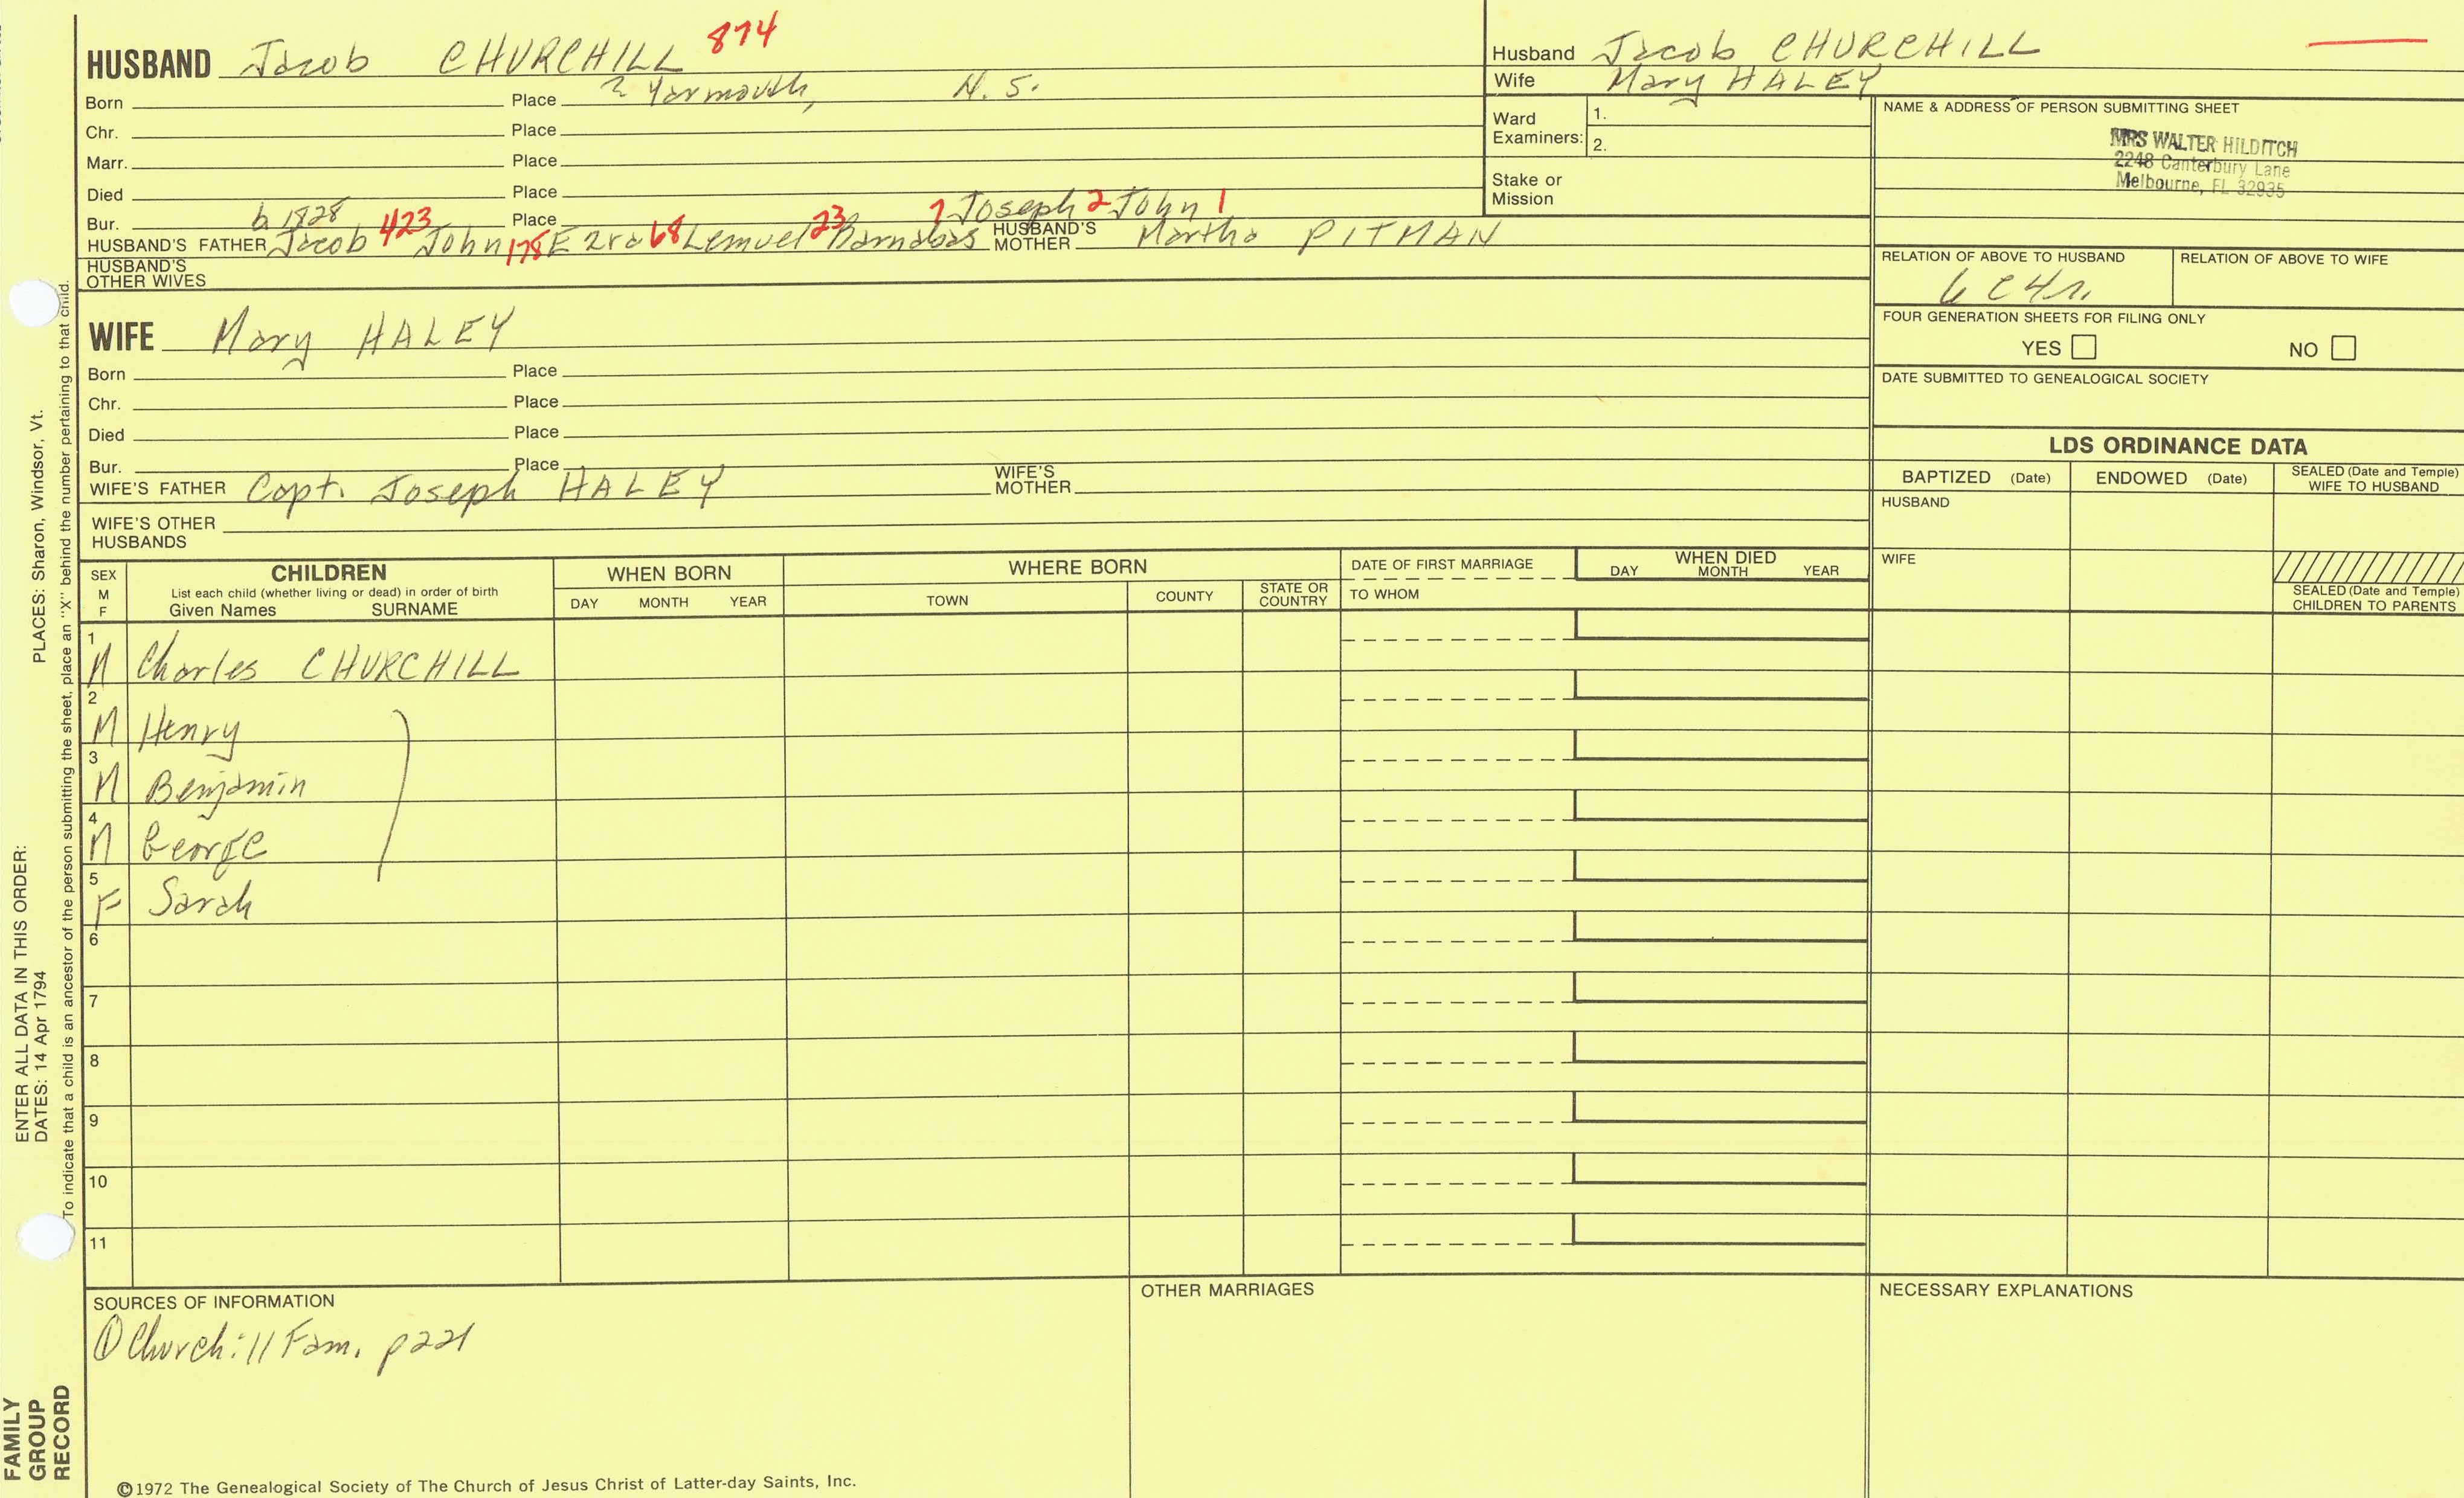 HUSBAND Jacob CHURCHILL 874
Born Place ? Yarmouth, N. S.
Chr. Place
Marr. Place
Died Place
Bur. b 1828 Place 7 Joseph 2 John 1
HUSBAND'S FATHER Jacob 423 John 178 Ezra 68 Lemuel 23 Barnabas HUSBAND'S MOTHER Martha PITMAN
HUSBAND'S OTHER WIVES
Husband Jacob CHURCHILL
Wife Mary HALEY
Ward Examiners: 1.
2.
Stake or Mission
NAME & ADDRESS OF PERSON SUBMITTING SHEET
MRS WALTER HILDITCH
2248 Canterbury Lane
Melbourne, FL 32935
RELATION OF ABOVE TO HUSBAND RELATION OF ABOVE TO WIFE
6 C 4 r.
FOUR GENERATION SHEETS FOR FILING ONLY
YES NO
DATE SUBMITTED TO GENEALOGICAL SOCIETY
WIFE Mary HALEY
Born Place
Chr. Place
Died Place
Bur. Place
WIFE'S FATHER Capt. Joseph HALEY WIFE'S MOTHER
WIFE'S OTHER HUSBANDS
LDS ORDINANCE DATA
BAPTIZED (Date) ENDOWED (Date) SEALED (Date and Temple) WIFE TO HUSBAND
HUSBAND
WIFE
SEALED (Date and Temple) CHILDREN TO PARENTS
SEX M F CHILDREN
List each child (whether living or dead) in order of birth
Given Names SURNAME
WHEN BORN
DAY MONTH YEAR
WHERE BORN
TOWN COUNTY STATE OR COUNTRY
DATE OF FIRST MARRIAGE
TO WHOM
WHEN DIED
DAY MONTH YEAR
1 M Charles CHURCHILL
2 M Henry
3 M Benjamin
4 M George
5 F Sarah
6
7
8
9
10
11
SOURCES OF INFORMATION
① Churchill Fam. p221
OTHER MARRIAGES
NECESSARY EXPLANATIONS
©1972 The Genealogical Society of The Church of Jesus Christ of Latter-day Saints, Inc.
FAMILY
GROUP
RECORD
ENTER ALL DATA IN THIS ORDER:
DATES: 14 Apr 1794 PLACES: Sharon, Windsor, Vt.
To indicate that a child is an ancestor of the person submitting the sheet, place an "X" behind the number pertaining to that child.